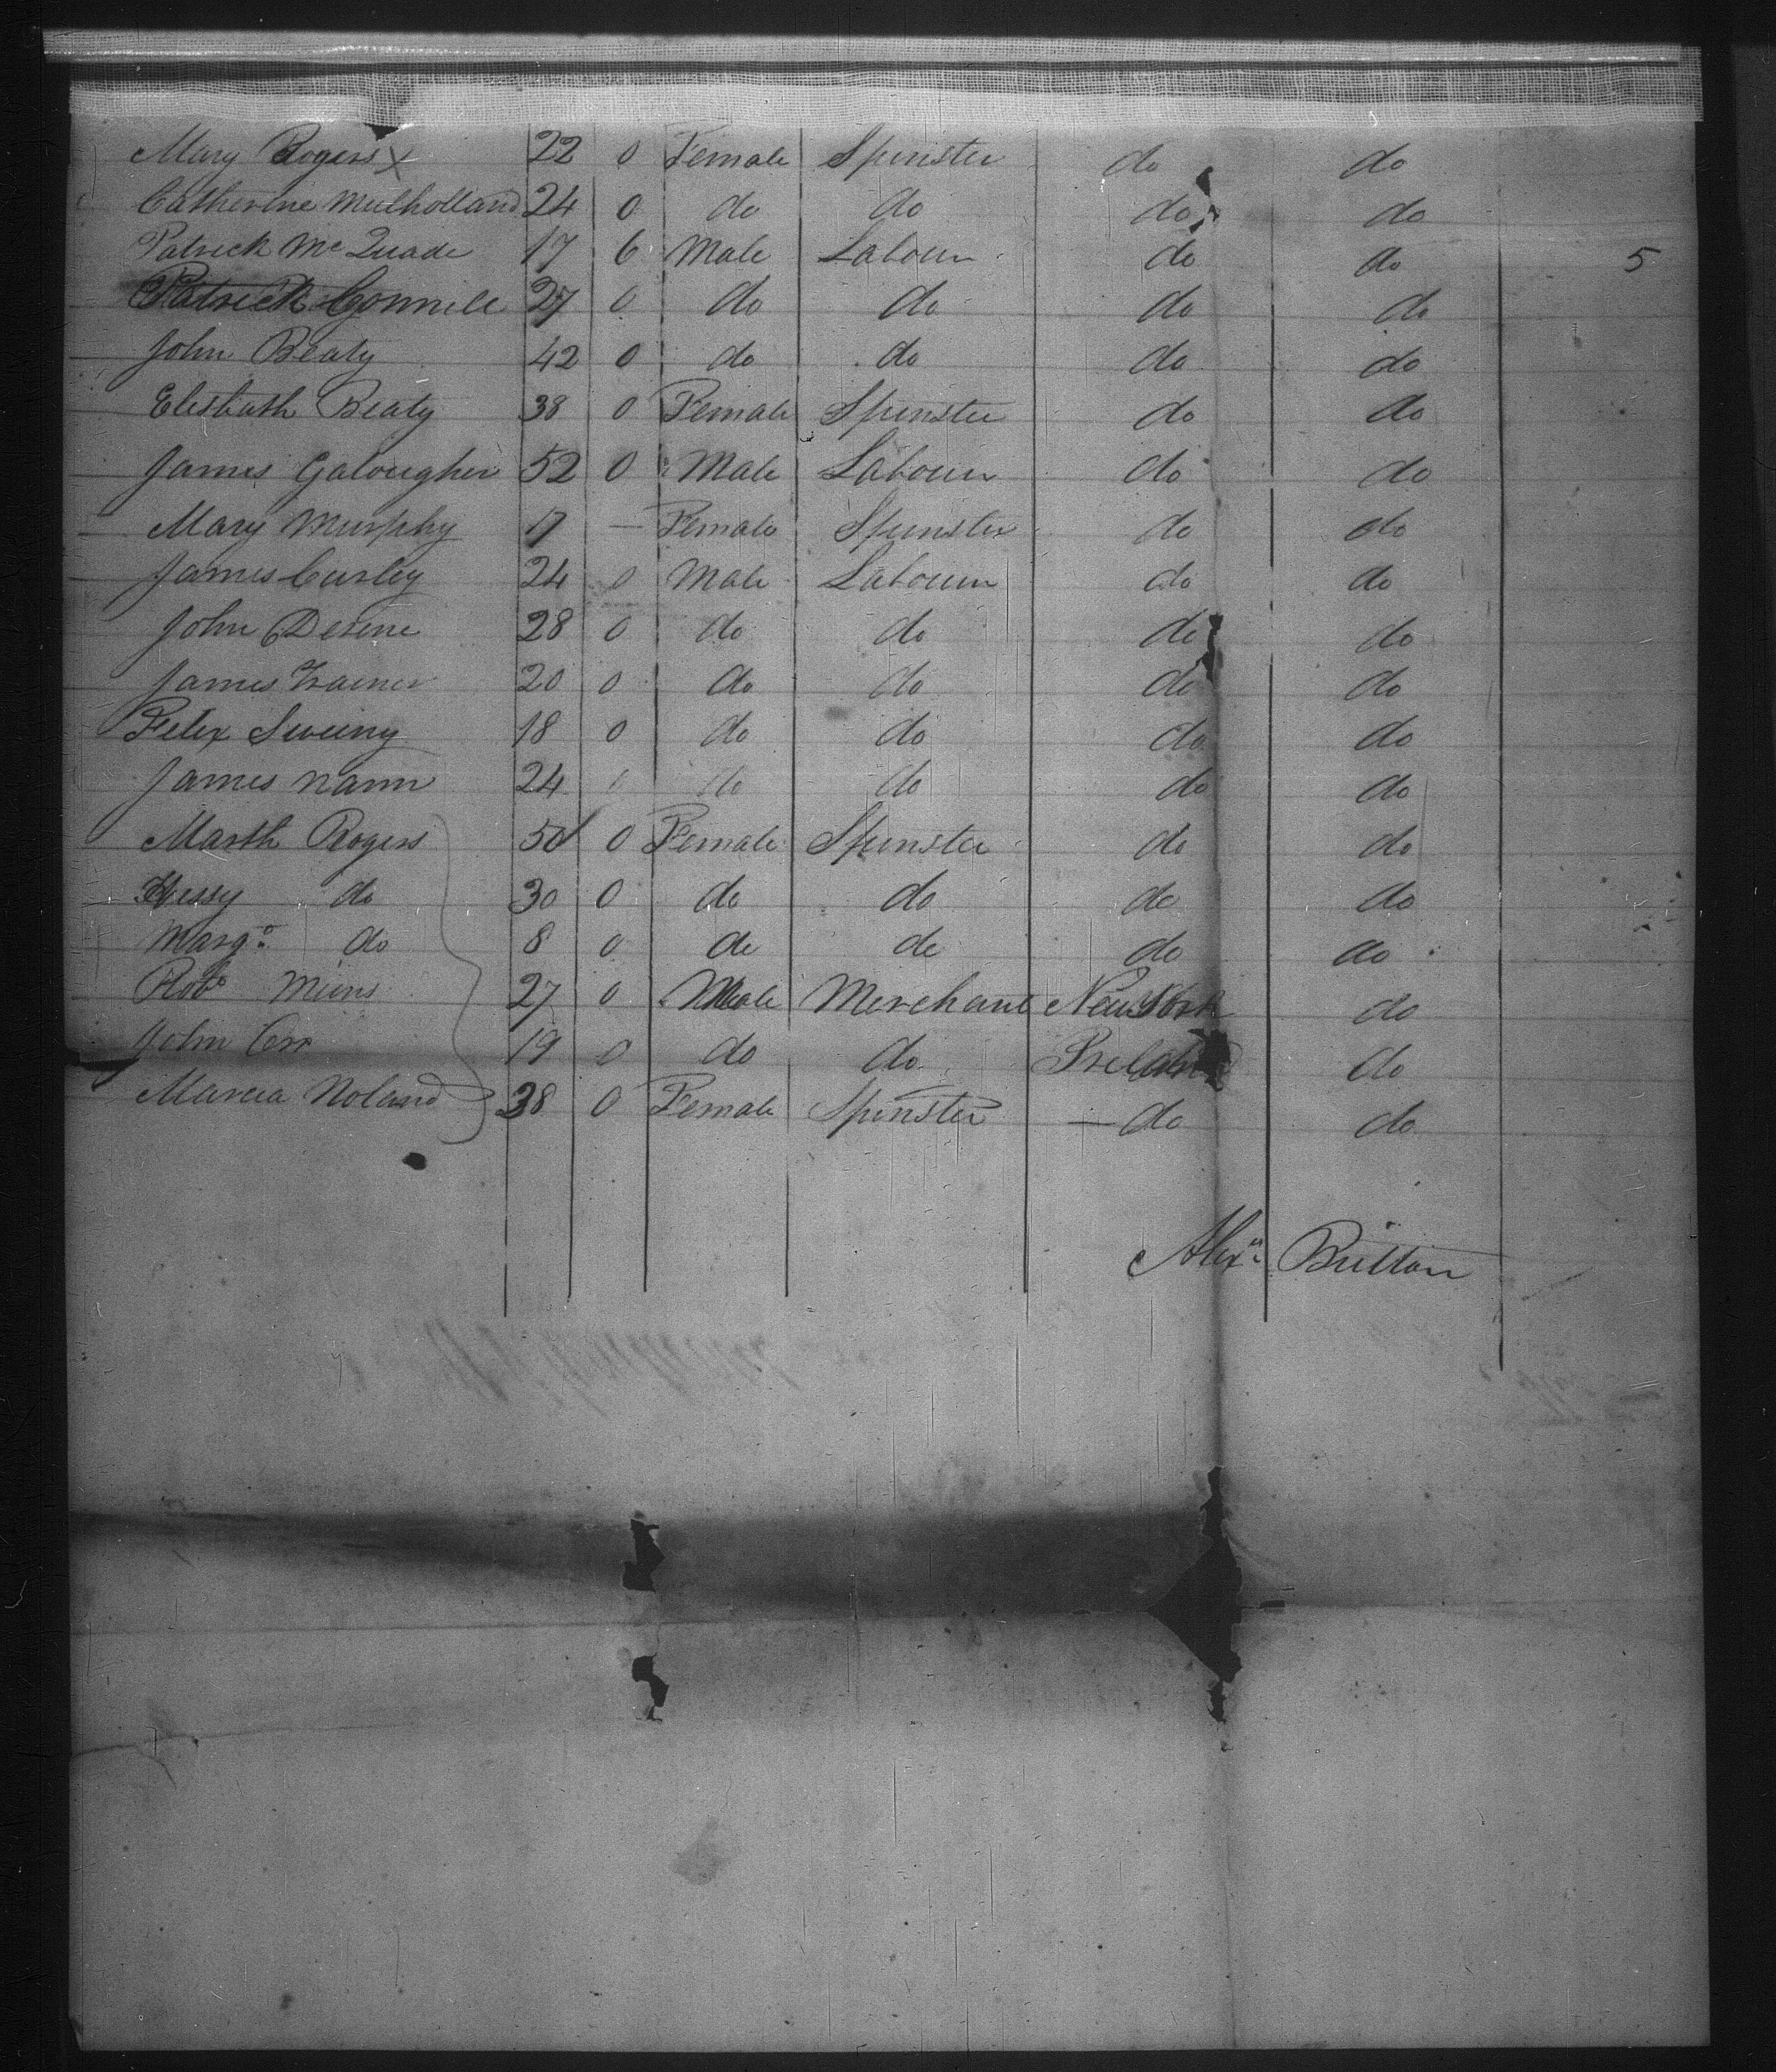 Mary Rogers x 22 0 Female Spinster do do
Catherine Mulholland 24 0 do do do do
Patrick Mc Quade 17 6 Male Labour do do 5
Patrick Connill 27 0 do do do do
John Beaty 42 0 do do do do
Elesbath Beaty 38 0 Female Spinster do do
James Galougher 52 0 Male Labour do do
Mary Murphy 17 — Female Spinster do do
James Curley 24 0 Male Labour do do
John Devine 28 0 do do do do
James Trainer 20 0 do do do do
Felix Sweeny 18 0 do do do do
James Nann 24 0 do do do do
Marth Rogers 50 0 Female Spinster do do
Hessy do 30 0 do do do do
Marg do 8 0 do do do do
Robt 27 0 Male Merchant New York do
John Orr 19 0 do do Ireland do
Marcia Noland 38 0 Female Spinster — do do
Alexr Britton